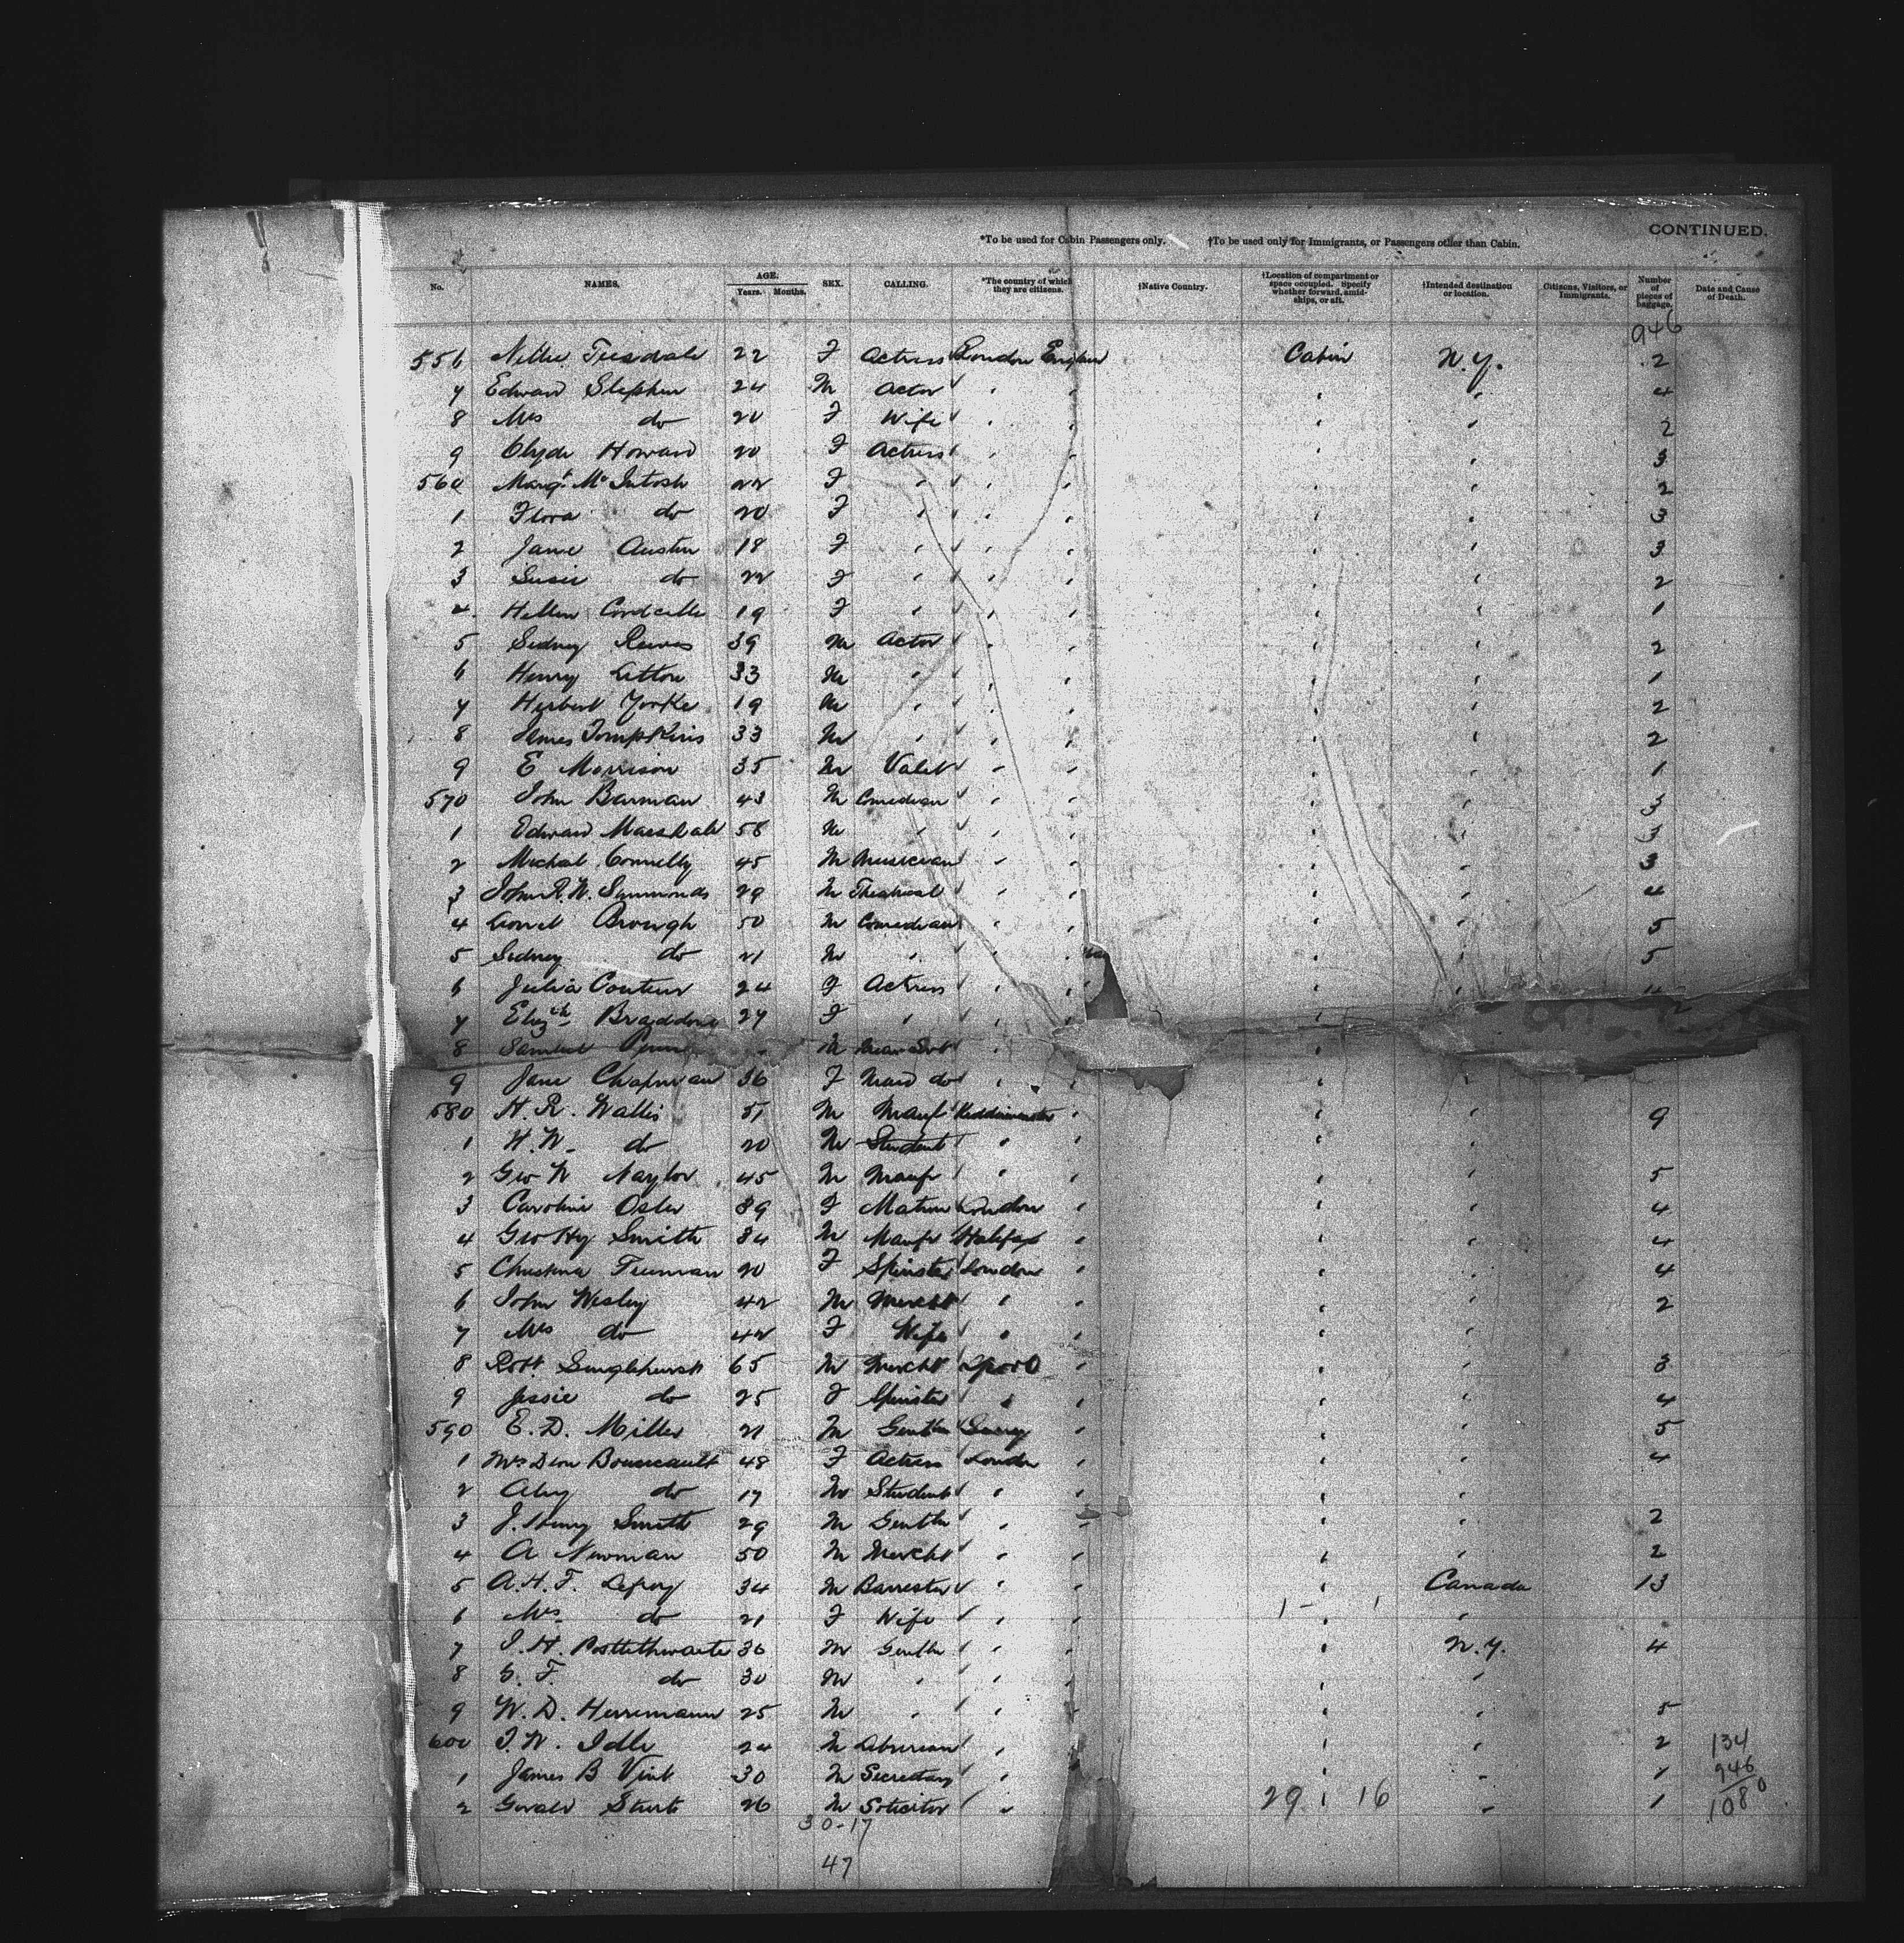 CONTINUED.
*To be used for Cabin Passengers only. †To be used only for Immigrants, or Passengers other than Cabin.
No. NAMES. AGE. Years. Months. SEX. CALLING. *The country of which they are citizens. †Native Country. †Location of compartment or space occupied. Specify whether forward, amidships, or aft. †Intended destination or location. Citizens, Visitors, or Immigrants. Number of pieces of baggage. Date and Cause of Death.
946
556 Nellie Teesdale 22 F Actress London England Cabin N.Y. 2
7 Edward Stephen 24 M Actor 4
8 Mrs do 20 F Wife 2
9 Clyde Howard 20 F Actress 3
560 Margt McIntosh 22 F 2
1 Flora do 20 F 3
2 Jane Austin 18 F 3
3 Susie do 22 F 2
4 Hellen 19 F 1
5 Sidney 39 M Actor 2
6 Henry Litton 33 M 1
7 Herbert Yorke 19 M 2
8 James Tompkins 33 M 2
9 E Morrison 35 M Valet 1
570 John Barman 43 M Comedian 3
1 Edward Marshall 58 M 3
2 Michal Connelly 45 M Musician 3
3 John R. W. Simmonds 29 M Theatrical 4
4 Lionel Brough 50 M Comedian 5
5 Sidney do 21 M 5
6 Julia 24 F Actress
7 Elizth Braddon 27 F
8 Samuel M
9 Jane Chapman 36 F Maid do
580 H. R. Wallis 51 M Manfr Kedderminster 9
1 H. W. do 20 M Student
2 Geo W Naylor 45 M Manfr 5
3 Caroline Osler 39 F Matron London 4
4 Geo Hy Smith 34 M Manfr Halifax 4
5 Christina 20 F Spinster London 4
6 John Wesley 42 M Mercht 2
7 Mrs do 42 F Wife
8 Robt Singlehurst 65 M Mercht Lpool 3
9 Jessie do 25 F Spinster 4
590 E. D. Miller 21 M Gentln Surrey 5
1 Mrs Dion Boucicault 48 F Actress London 4
2 do 17 M Student
3 J. Henry Smith 29 M Gentln 2
4 A Newman 50 M Mercht 2
5 A. H. F. Lefroy 34 M Barrester Canada 13
6 Mrs do 21 F Wife
7 Postlethwaite 36 M Gentln N.Y. 4
8 G. F. do 30 M
9 W. D. Herrimann 25 M 5
600 Idle 24 M 2 134
1 James B Vint 30 M Secretary 1 946
2 Gerald Sturt 26 M Solicitor 29 16 1 1080
30-17
47